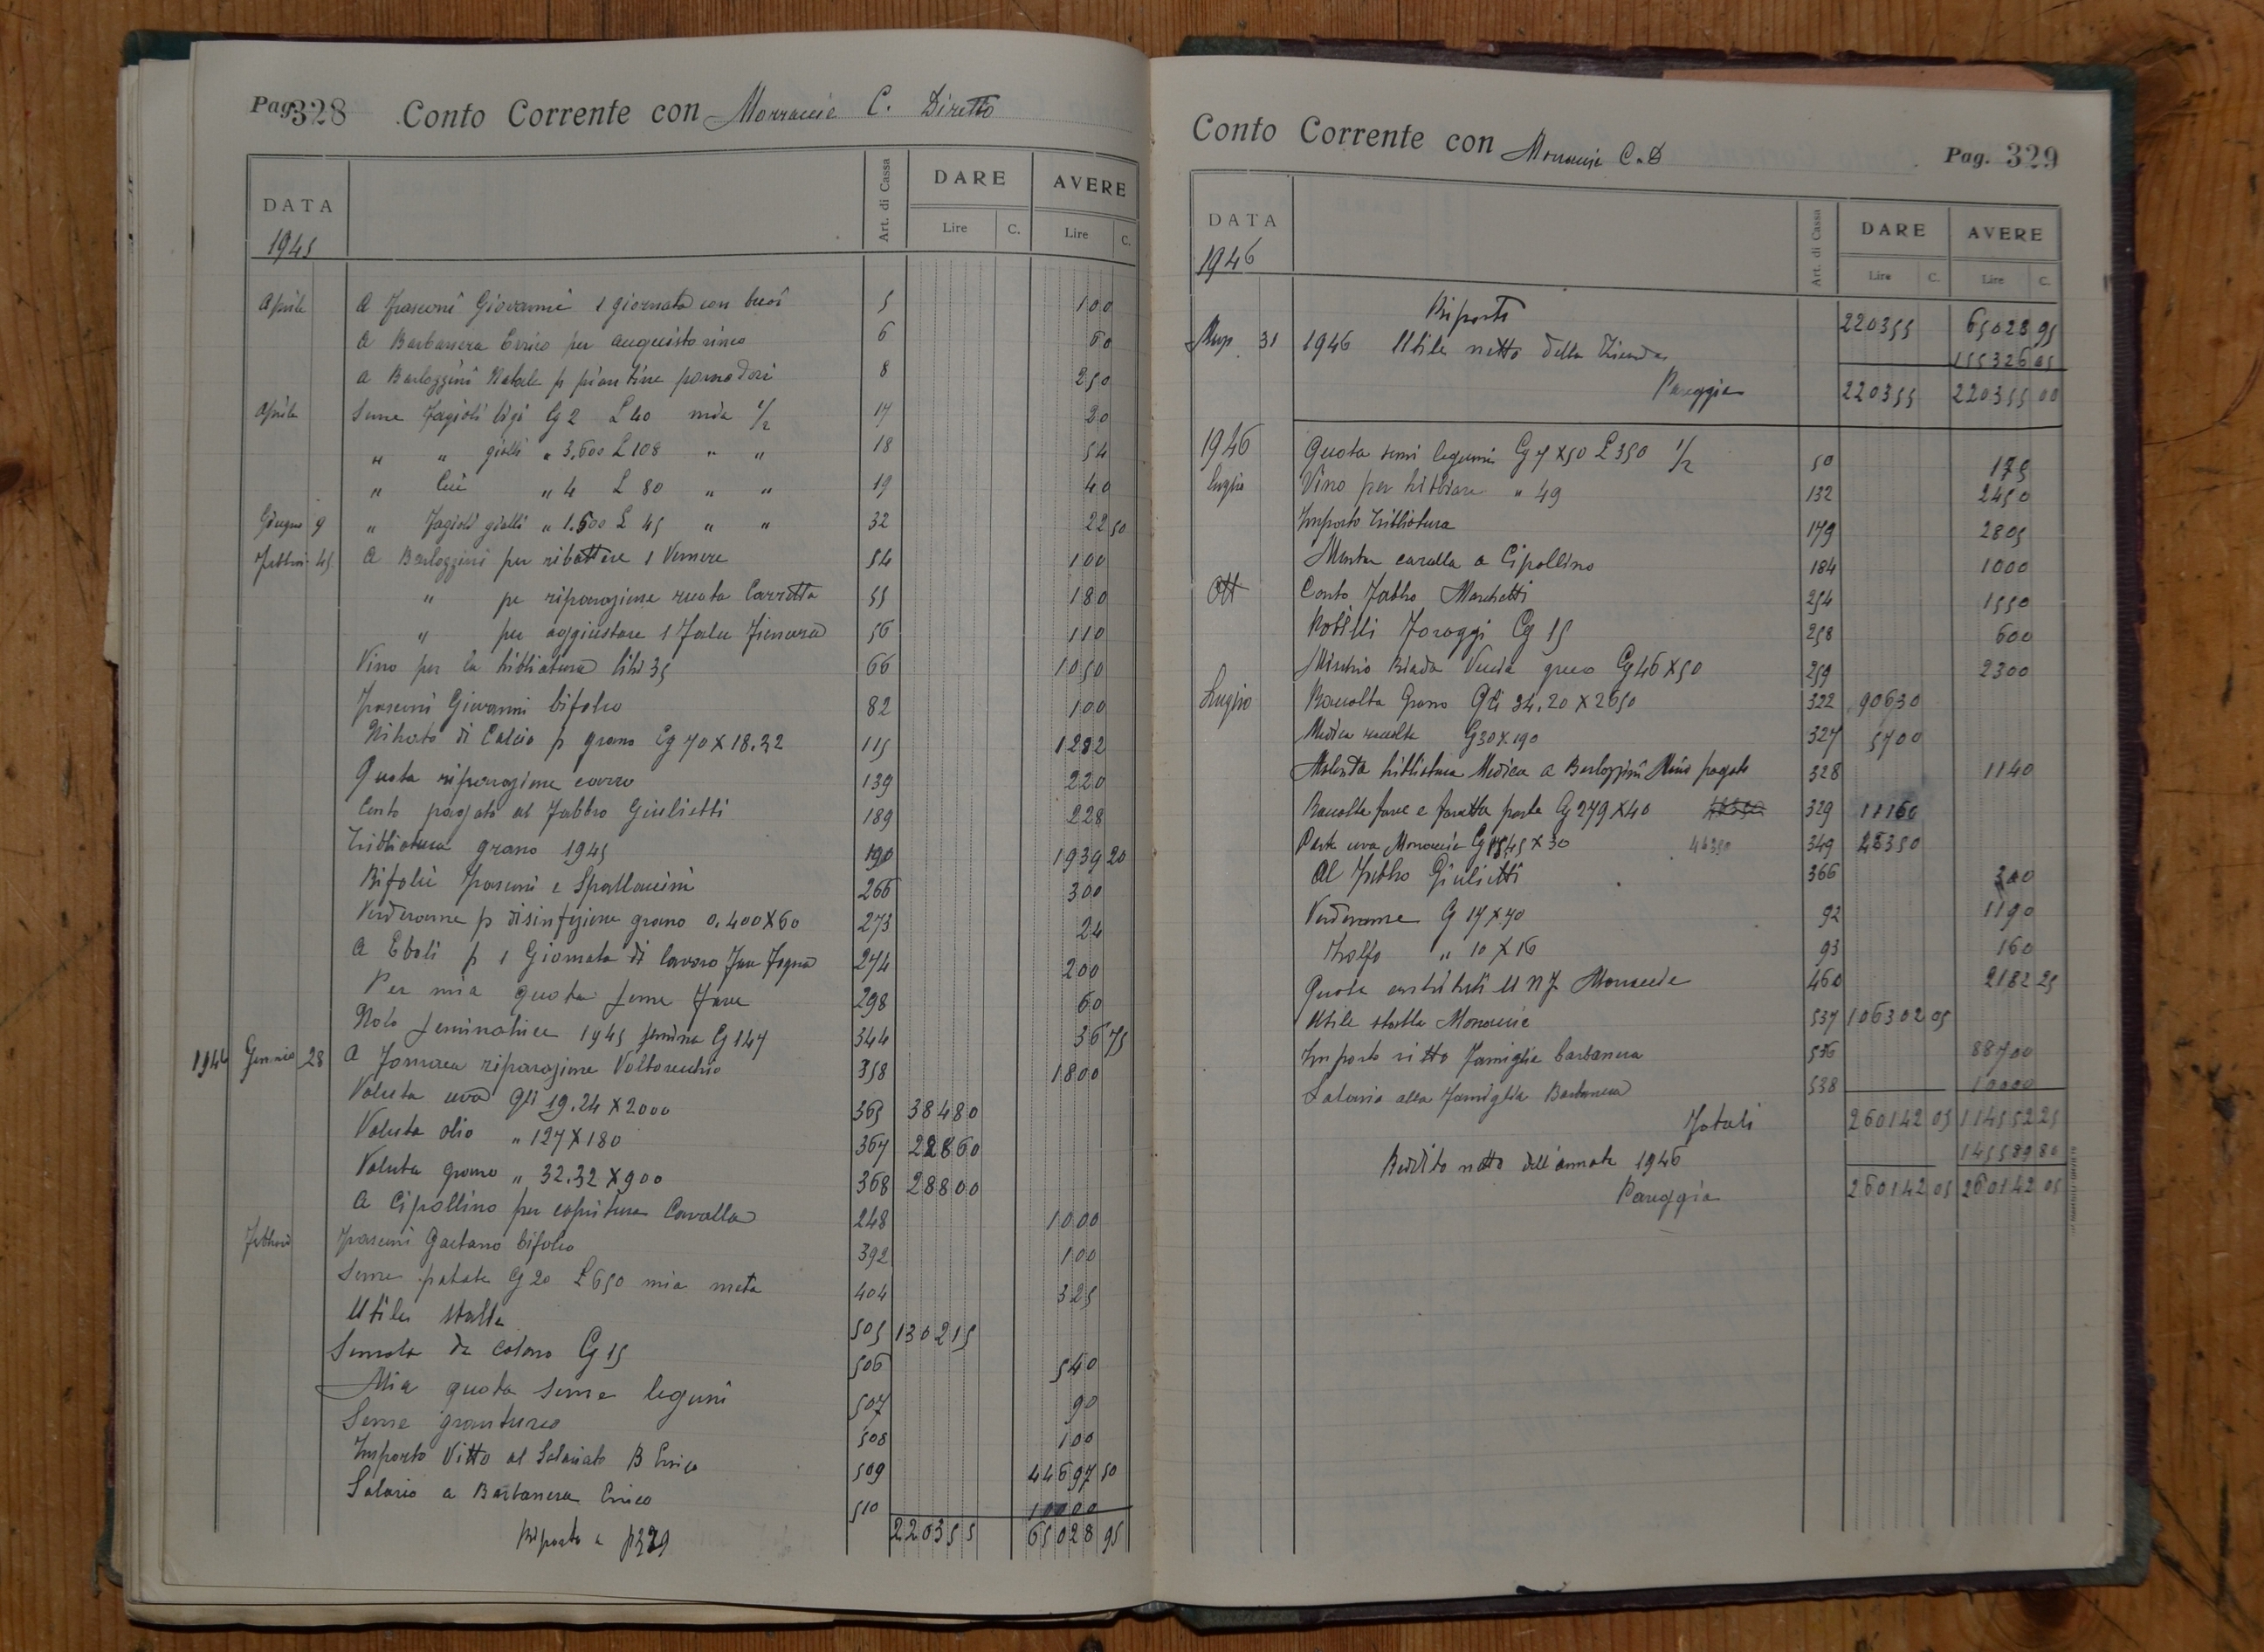 Pag. 328 Conto Corrente con C. Diretto
DATA Art. di Cassa DARE AVERE
Lire C. Lire C.
1945
Aprile A Frasconi Giovanni 1 giornata con buoi 5 100
A Barbanera Enrico per acquisto vino 6 60
A Barlozzini Natale p piantine pomodori 8 250
Aprile Seme Fagioli bigi Cg 2 L 40 mia 1/2 17 20
„ „ gialli „ 3.600 L 108 „ „ 18 54
„ Ceci „ 4 L 80 „ „ 19 40
Giugno 9 „ Fagioli gialli „ 1.500 L 45 „ „ 32 22 50
Febbrai 45 A Barlozzini per ribattere 1 Vomere 54 100
„ pe riparazione ruota Carretta 55 180
„ per aggiustare 1 Falce Fienara 56 110
Vino per la tribbiatura litri 35 66 1050
Frasconi Giovanni bifolco 82 100
Nitrato di Calcio p grano Cg 70 X 18.32 115 1282
Quota riparazione carro 139 220
Conto pagato al Fabbro Giulietti 189 228
Tribbiatura grano 1945 190 1939 20
Bifolchi Frasconi e Spallaccini 266 300
Verderame p disinfezione grano 0.400 X 60 273 24
A Eboli p 1 Giornata di lavoro 274 200
Per mia quota seme fave 298 60
Nolo seminatrice 1945 semina Cg 147 344 36 75
1946 Gennaio 28 A Fornaca riparazione Voltorecchio 358 1800
Valuta uva Qli 19.24 X 2000 365 38480
Valuta olio „ 127 X 180 367 22860
Valuta grano „ 32.32 X 900 368 28800
A Cipollino per copritura Cavalla 248 1000
Febbraio Frasconi Gaetano bifolco 392 100
Seme patate Cg 20 L 650 mia metà 404 325
Utile stalla 505 130215
Semola da colono Cg 15 506 540
Mia quota seme legumi 507 90
Seme granturco 508 100
Importo Vitto al Salariato B Enrico 509 44697 50
Salario a Barbanera Enrico 510 10000
Riporto a p 329 220355 65028 95
Conto Corrente con C. D Pag. 329
DATA Art. di Cassa DARE AVERE
Lire C. Lire C.
1946
Riporto 220355 65028 95
31 1946 Utile netto della Azienda 155326 05
Pareggia 220355 220355 00
1946 Quota semi legumi Cg 7 X 50 L 350 1/2 50 175
luglio Vino per tribbiare „ 49 132 2450
Importo tribbiatura 179 2805
Monta cavalla a Cipollino 184 1000
Ott Conto Fabbro Marchetti 254 1550
Foraggi Cg 15 258 600
Mischio Biada Veccia greco Cg 46 X 50 259 2300
Luglio Raccolta Grano Qli 34.20 X 2650 322 90630
Medica raccolta G 30 X 190 327 5700
Molenda tribbiatura Medica a Barlozzini Nino pagato 328 1140
Raccolta fave e favetta parte Cg 279 X 40 329 11160
Parte uva Cg 1545 X 30 46350 349 46350
Al Fabbro Giulietti 366 300
Verderame G 17 X 70 92 1190
Zolfo „ 10 X 16 93 160
Quota contributi U N F 460 2182 25
Utile stalla 537 106302 05
Importo vitto famiglia Barbanera 536 88700
Salario alla famiglia Barbanera 538 10000
Totali 260142 05 114552 25
Reddito netto dell'annata 1946 145589 80
Pareggia 260142 05 260142 05